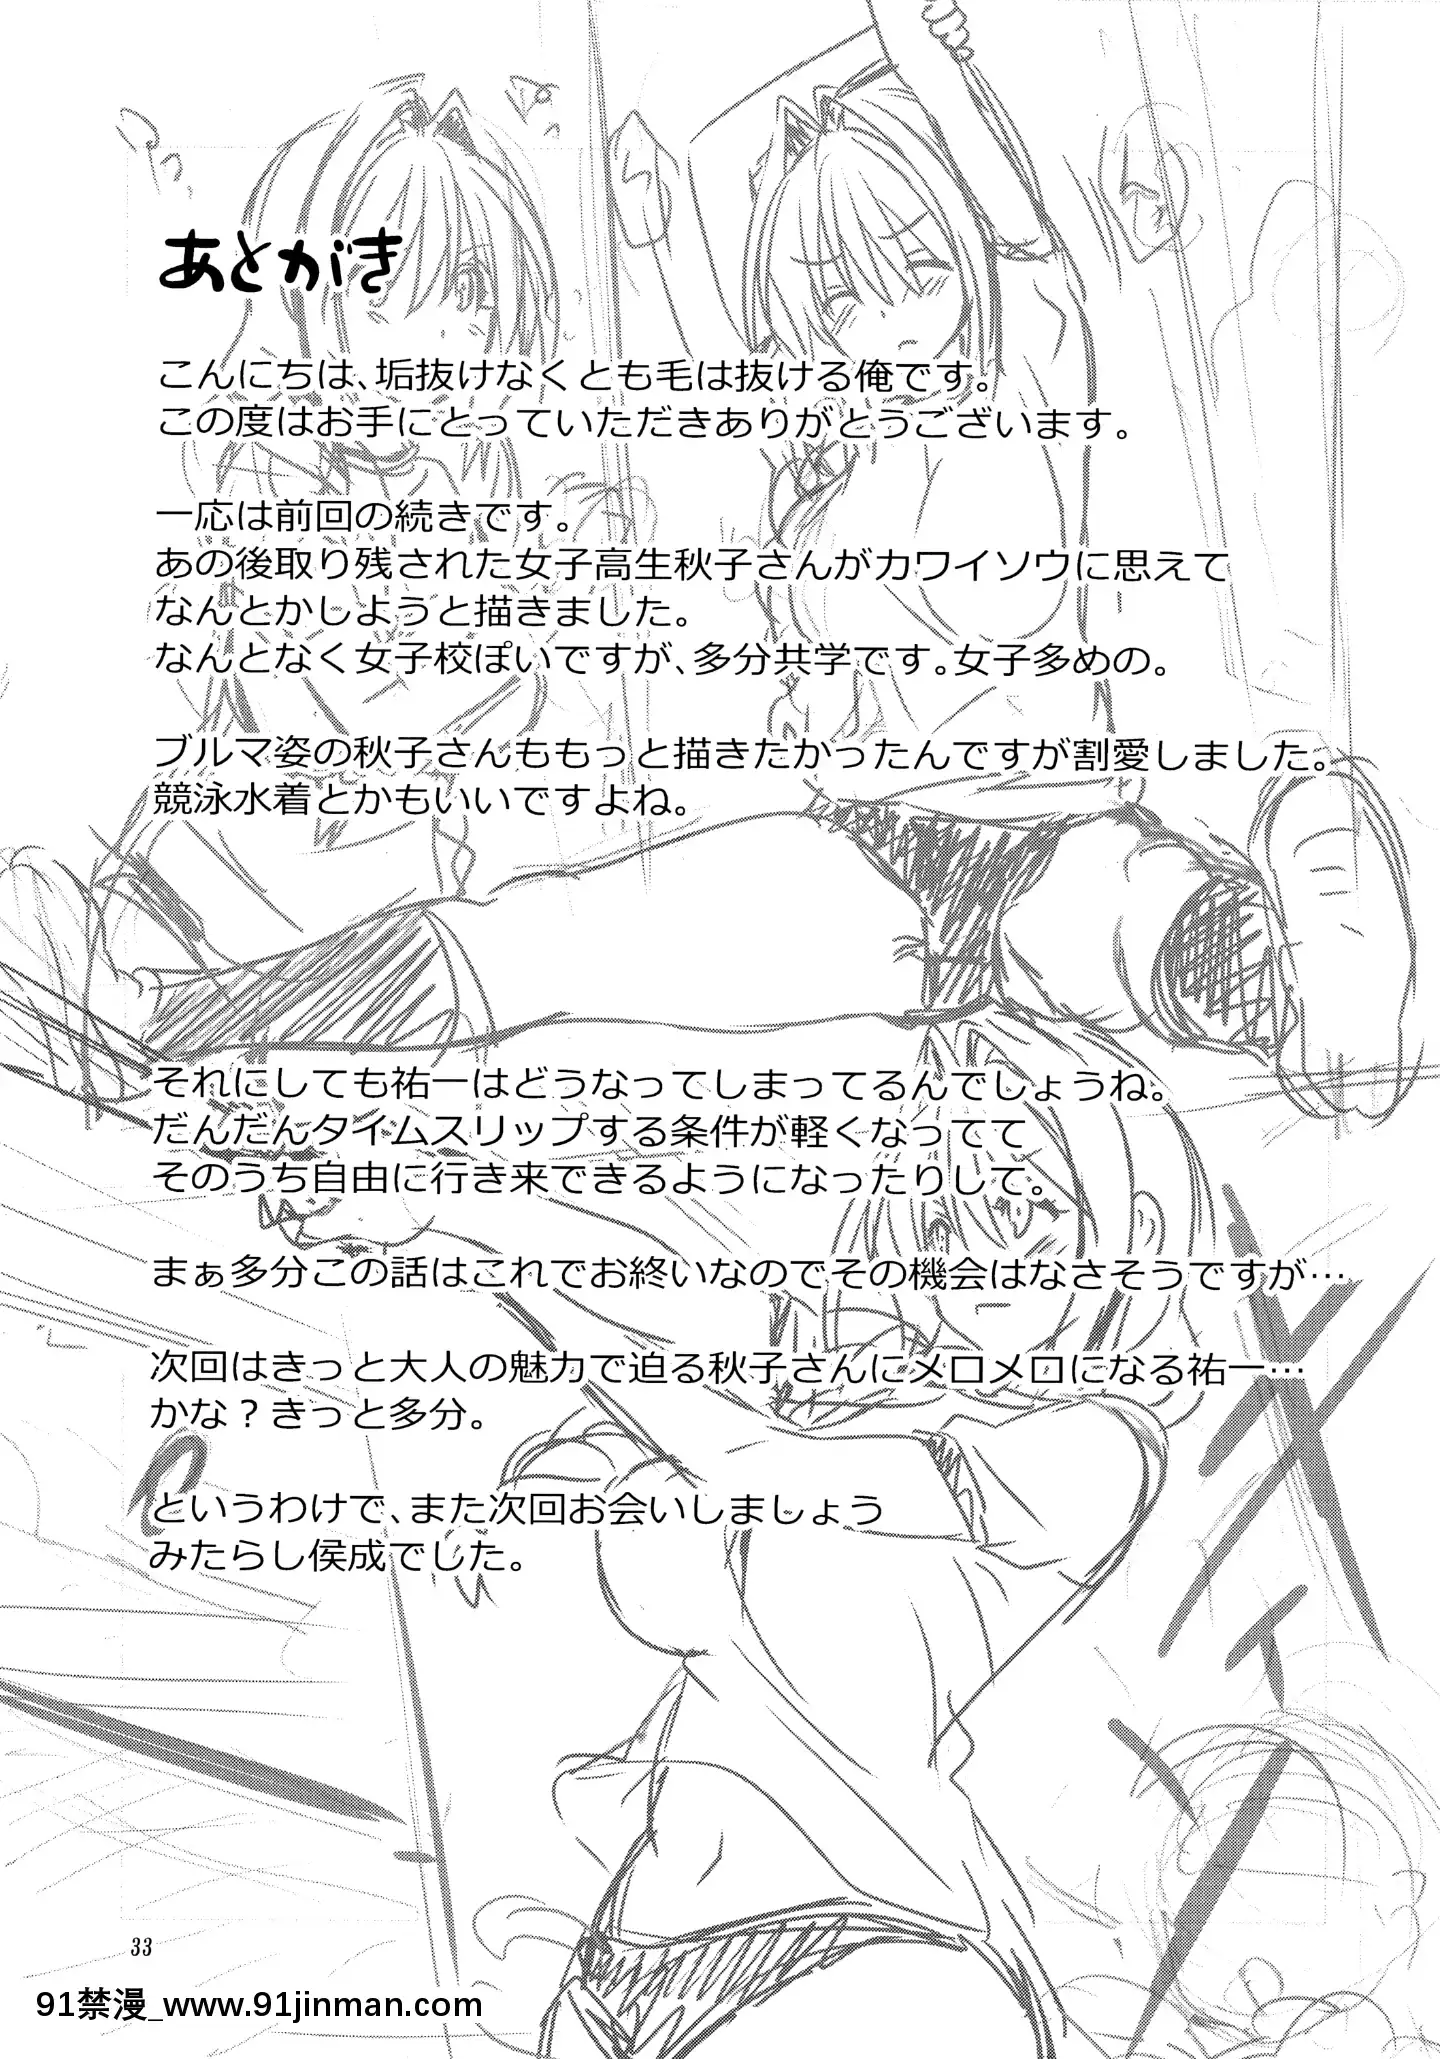 あとがき
こんにちは、垢抜けなくとも毛は抜ける俺です。
この度はお手にとっていただきありがとうございます。
一応は前回の続きです。
あの後取り残された女子高生秋子さんがカワイソウに思えて
なんとかしようと描きました。
なんとなく女子校ぽいですが、多分共学です。女子多めの。
ブルマ姿の秋子さんももっと描きたかったんですが割愛しました。
競泳水着とかもいいですよね。
それにしても祐一はどうなってしまってるんでしょうね。
だんだんタイムスリップする条件が軽くなってて
そのうち自由に行き来できるようになったりして。
まぁ多分この話はこれでお終いなのでその機会はなさそうですが…
次回はきっと大人の魅力で迫る秋子さんにメロメロになる祐一…
かな？きっと多分。
というわけで、また次回お会いしましょう
みたらし侯成でした。
33
91禁漫_www.91jinman.com